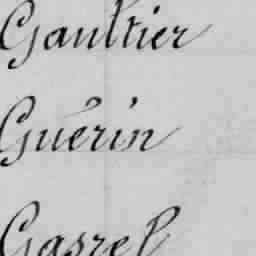 Gaultier
Guérin
Gasrel